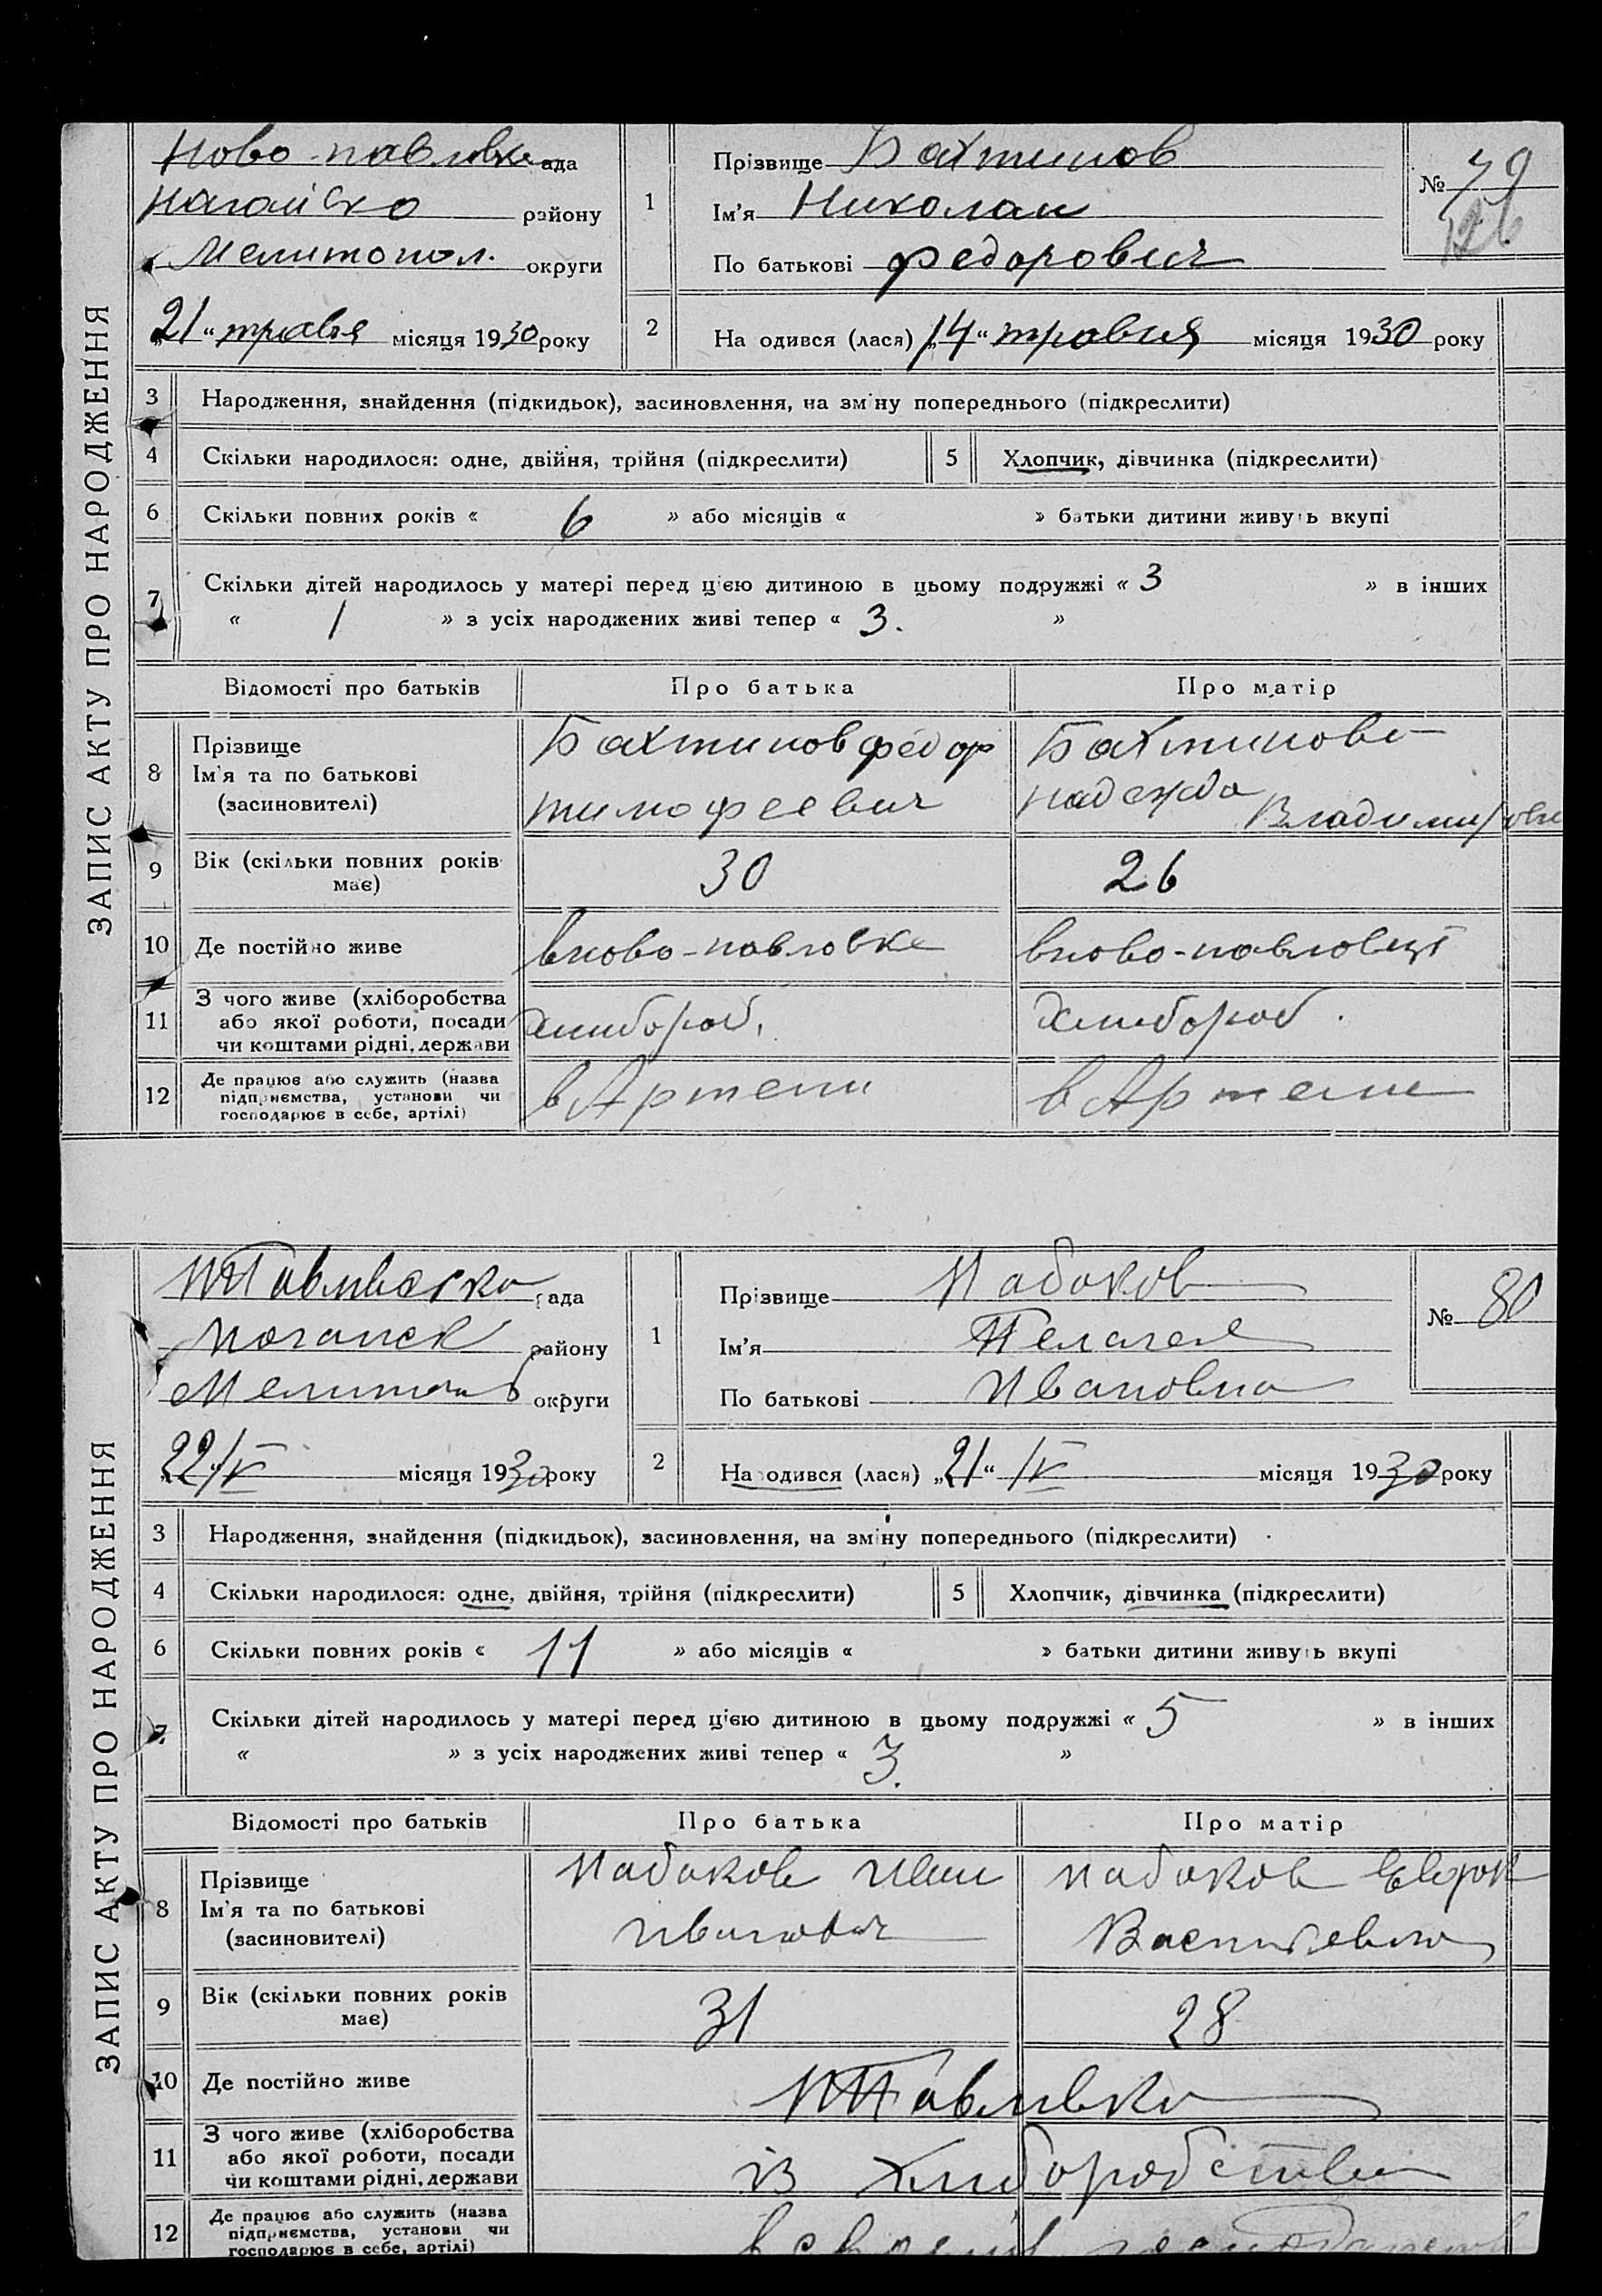 ЗАПИС АКТУ ПРО НАРОДЖЕННЯ
Ново-павловка ада
Ногайско району
Мелитопол. округи
„21“ травня місяця 1930 року
1 Прізвище Бахтинов
Ім'я Николай
По батькові Федорович
№ 79
126
2 На одився (лася) „14“ травня місяця 1930 року
3 Народження, знайдення (підкидьок), засиновлення, на зміну попереднього (підкреслити)
4 Скільки народилося: одне, двійня, трійня (підкреслити) 5 Хлопчик, дівчинка (підкреслити)
6 Скільки повних років « 6 » або місяців « » батьки дитини живуть вкупі
7 Скільки дітей народилось у матері перед цією дитиною в цьому подружжі « 3 » в інших
« 1 » з усіх народжених живі тепер « 3. »
Відомості про батьків Про батька Про матір
8 Прізвище
Ім'я та по батькові
(засиновителі)
Бахтинов Федор
Тимофеевич
Бахтинова
Надежда
Владимировна
9 Вік (скільки повних років має) 30 26
10 Де постійно живе вново-павловке вново-павловці
11 З чого живе (хліборобства
або якої роботи, посади
чи коштами рідні, держави
хлибороб. хлибороб.
12 Де працює або служить (назва
підприємства, установи чи
господарює в себе, артілі)
в Артели в Артели
ЗАПИС АКТУ ПРО НАРОДЖЕННЯ
рада
району
округи
„22“/V місяця 1930 року
1 Прізвище Набоков
Ім'я Пелагея
По батькові Ивановна
№ 80
2 На одився (лася) „21“ /V місяця 1930 року
3 Народження, знайдення (підкидьок), засиновлення, на зміну попереднього (підкреслити)
4 Скільки народилося: одне, двійня, трійня (підкреслити) 5 Хлопчик, дівчинка (підкреслити)
6 Скільки повних років « 11 » або місяців « » батьки дитини живуть вкупі
7 Скільки дітей народилось у матері перед цією дитиною в цьому подружжі « 5 » в інших
« » з усіх народжених живі тепер « 3. »
Відомості про батьків Про батька Про матір
8 Прізвище
Ім'я та по батькові
(засиновителі)
Набоков Иван
Иванович
Набоков
Васильевна
9 Вік (скільки повних років має) 31 28
10 Де постійно живе НПавливка
11 З чого живе (хліборобства
або якої роботи, посади
чи коштами рідні, держави
із хлиборобства
12 Де працює або служить (назва
підприємства, установи чи
господарює в себе, артілі)